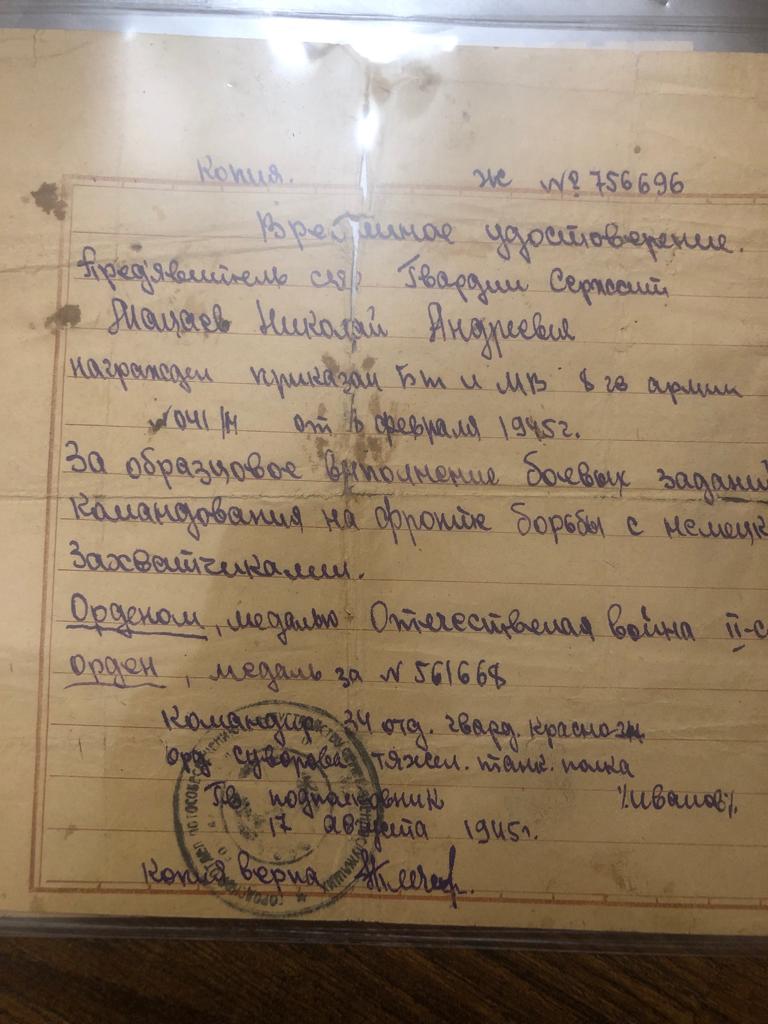 Копия. Ж № 756696
Временное удостоверение.
Пред'явитель сего Гвардии Сержант
Николай Андреевич
награжден приказам БТ и МВ 8 гв армии
№ 041/н от 6 февраля 1945 г.
За образцовое выполнение боевых заданий
Командования на фронте борьбы с немецк
Захватчиками.
Орденом, медалью Отечественая война II-с
орден, медаль за № 561668
Командир 34 отд. гвард. красно-зн.
орд суворова тяжел. танк. полка
Гв подполковник /Иванов/.
17 Августа 1945г.
Копия верна